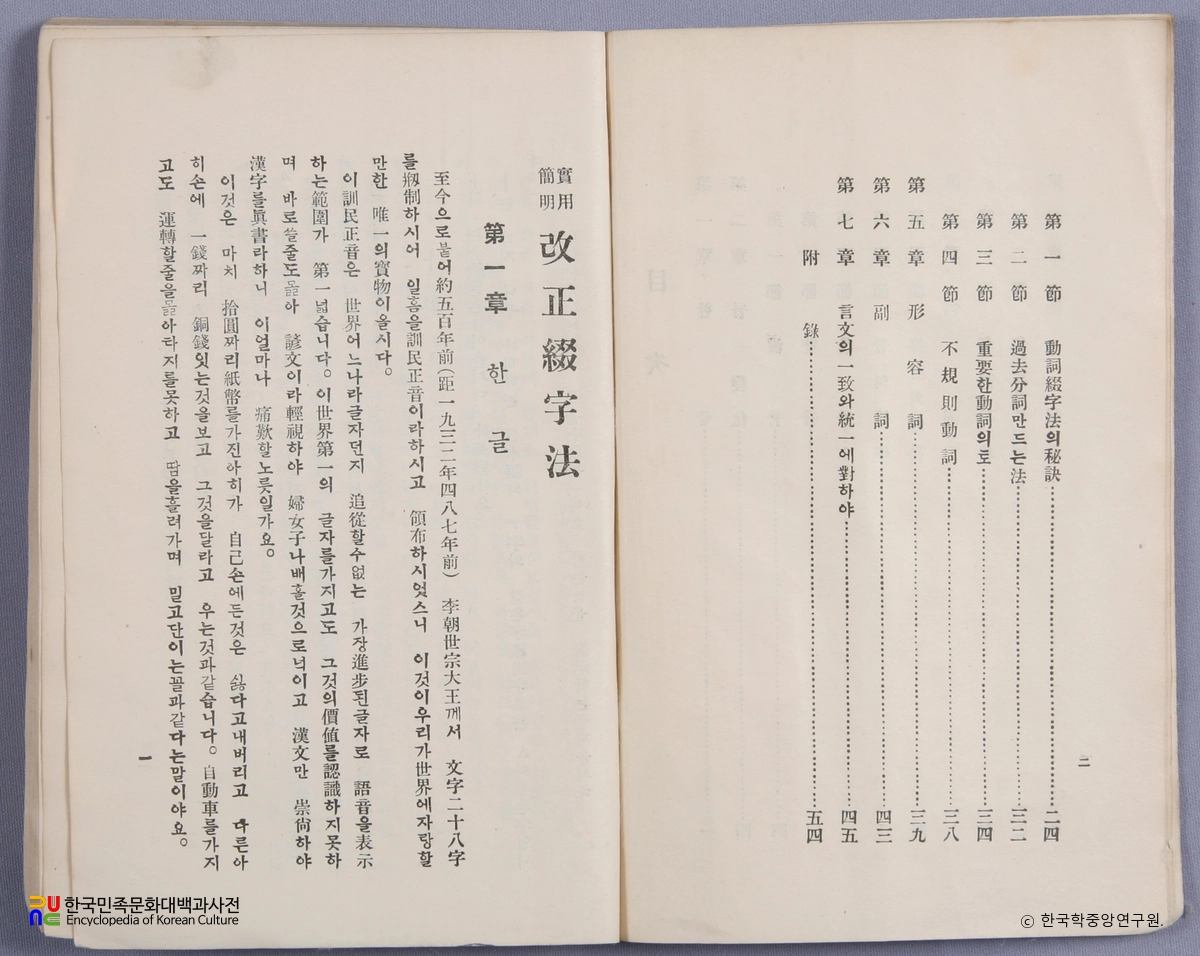 二
第一節 動詞綴字法의秘訣……二四
第二節 過去分詞만드는法……三二
第三節 重要한動詞의토……三四
第四節 不規則動詞……三八
第五章 形容詞……三九
第六章 副詞……四三
第七章 言文의一致와統一에對하야……四五
附錄……五四
實用
簡明
改正綴字法
第一章 한글
至今으로붙어約五百年前(距一九三三年四八七年前) 李朝世宗大王께서 文字二十八字
를刱制하시어 일흠을訓民正音이라하시고 頒布하시엇스니 이것이우리가世界에자랑할
만한 唯一의寶物이올시다。
이訓民正音은 世界어느나라글자던지 追從할수없는 가장進步된글자로 語音을表示
하는範圍가 第一넓습니다。이世界第一의 글자를가지고도 그것의價値를認識하지못하
며 바로쓸줄도몲아 諺文이라輕視하야 婦女子나배홀것으로넉이고 漢文만 崇尙하야
漢字를眞書라하니 이얼마나 痛歎할노릇일가요。
이것은 마치 拾圓짜리紙幣를가진아히가 自己손에든것은 싫다고내버리고 다른아
히손에 一錢짜리 銅錢잇는것을보고 그것을달라고 우는것과같습니다。自動車를가지
고도 運轉할줄을몲아라지를못하고 땀을흘려가며 밀고단이는꼴과같다는말이야요。
一
한국민족문화대백과사전
Encyclopedia of Korean Culture
ⓒ 한국학중앙연구원.